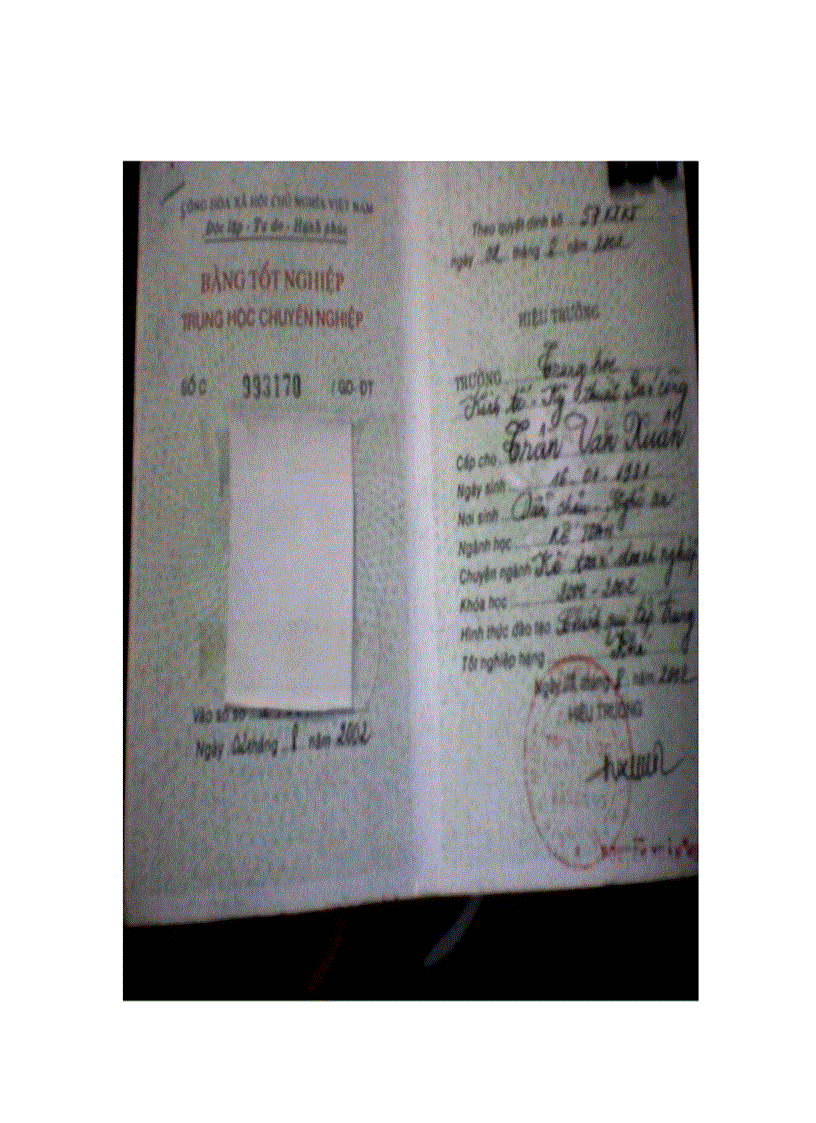 CỘNG HÒA XÃ HỘI CHỦ NGHĨA VIỆT NAM
Độc lập - Tự do - Hạnh phúc
BẰNG TỐT NGHIỆP
TRUNG HỌC CHUYÊN NGHIỆP
SỐ C 993170 / GD-ĐT
Vào sổ số
Ngày tháng 8 năm 2002
Theo quyết định số
ngày 02 tháng 8 năm 2002
HIỆU TRƯỞNG
TRƯỜNG Trung học
Kinh tế - Kỹ thuật
Cấp cho Trần Văn Xuân
Ngày sinh 16-01-1981
Nơi sinh Diễn Châu - Nghệ An
Ngành học Kế toán
Chuyên ngành Kế toán doanh nghiệp
Khóa học 2000-2002
Hình thức đào tạo Chính quy tập trung
Tốt nghiệp hạng Khá
Ngày tháng 8 năm 2002
HIỆU TRƯỞNG